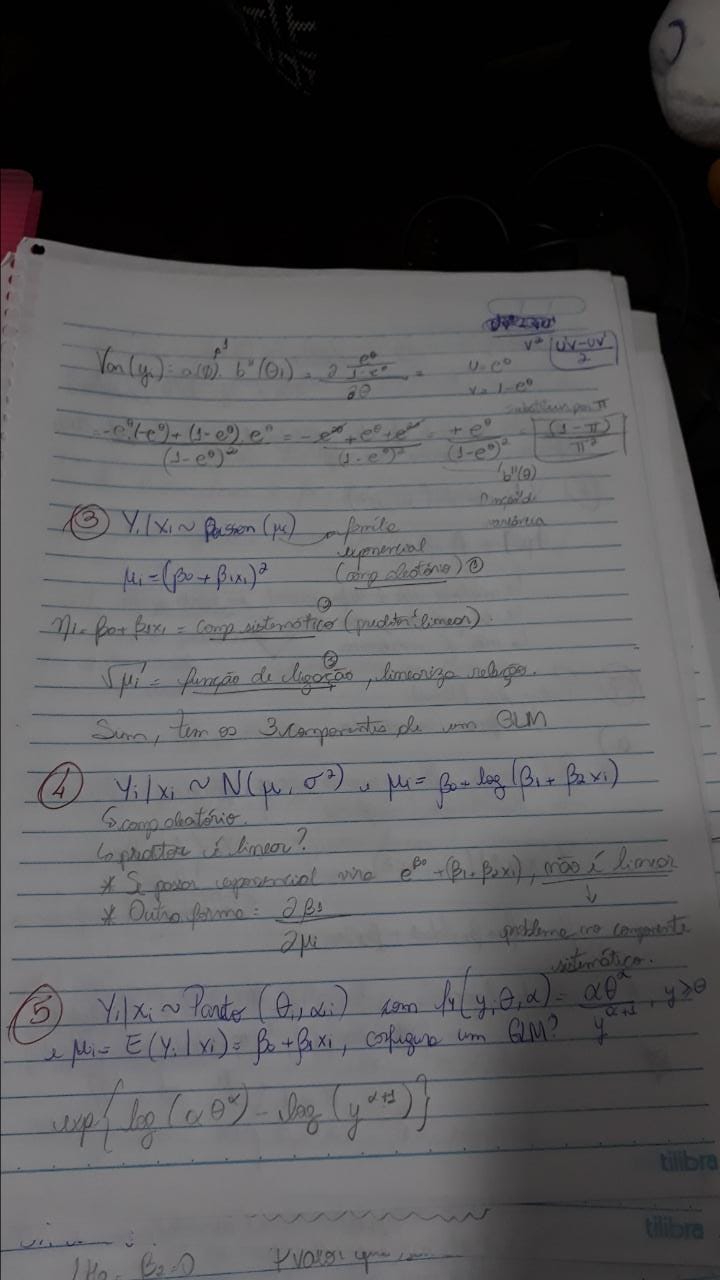 Var(yi) = a(φ). b''(θi) = ∂ e^θ/(1-e^θ) / ∂θ =
u = e^θ
v = 1-e^θ
v² u'v-uv' / 2
substituir por π
= -e^θ(-e^θ) + (1-e^θ) e^θ / (1-e^θ)² = -e^2θ + e^θ + e^2θ / (1-e^θ)² = + e^θ / (1-e^θ)² = (1-π) / π²
b''(θ)
função de
variância
3 Yi|xi ~ Poisson(μi) família
exponencial
μi = (β0 + β1xi)² (comp aleatório) 1
ηi = β0 + β1xi = comp sistemático (preditor linear).
√μi = função de ligação, lineariza relação.
Sim, tem os 3 componentes de um GLM
4 Yi|xi ~ N(μ, σ²) e μi = β0 + log(β1 + β2xi)
↳ comp aleatório.
↳ preditor é linear?
* Se passar exponencial vira e^β0 + (β1 + β2xi), não é linear
* Outra forma = ∂β1 / ∂μi
problema no componente
sistemático.
5 Yi|xi ~ Pareto (θi, αi) com fy(y, θ, α) = αθ^α / y^α+1, y ≥ θ
e μi = E(Yi|xi) = β0 + β1xi, configura um GLM?
exp{log(αθ^α) - log(y^α+1)}
tilibra
tilibra
β2 = 0